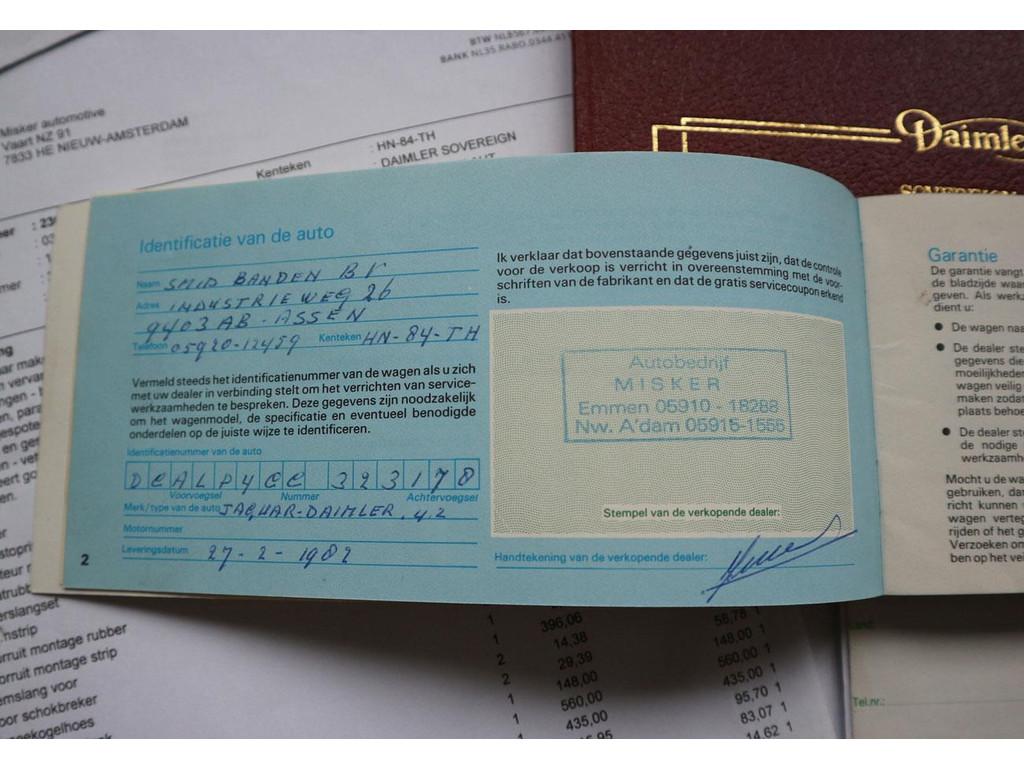 BANK NL35 RABO.0344.45
Misker automotive
Vaart NZ 91
7833 HE NIEUW-AMSTERDAM
Kenteken : HN-84-TH
: DAIMLER SOVEREIGN
Daimle
SOVEREIGN
Identificatie van de auto
Naam SMID BANDEN BV
Adres INDUSTRIEWEG 26
9403 AB - ASSEN
Telefoon 05920-12459 Kenteken HN-84-TH
Vermeld steeds het identificatienummer van de wagen als u zich
met uw dealer in verbinding stelt om het verrichten van service-
werkzaamheden te bespreken. Deze gegevens zijn noodzakelijk
om het wagenmodel, de specificatie en eventueel benodigde
onderdelen op de juiste wijze te identificeren.
Identificatienummer van de auto
DCALPYCC 323178
Voorvoegsel Nummer Achtervoegsel
Merk/type van de auto JAGUAR-DAIMLER 4.2
Motornummer
Leveringsdatum 27-2-1982
2
Ik verklaar dat bovenstaande gegevens juist zijn, dat de controle
voor de verkoop is verricht in overeenstemming met de voor-
schriften van de fabrikant en dat de gratis servicecoupon erkend
is.
Autobedrijf
MISKER
Emmen 05910 - 18288
Nw. A'dam 05915-1555
Stempel van de verkopende dealer:
Handtekening van de verkopende dealer:
Garantie
De garantie vangt
de bladzijde waa
geven. Als werk
dient u:
● De wagen naa
● De dealer ste
gegevens die
moeilijkheden
wagen veilig
maken zodat
plaats behoe
● De dealer st
de nodige
werkzaamh
Mocht u de wa
gebruiken, dan
richt kunnen
wagen verteg
rijden of het g
Verzoeken om
ben op het ve
Tel.nr.:
erslangset
nstrip
orruit montage rubber
orruit montage strip
emslang voor
oor schokbreker
eekogelhoes
1 396,06 58,78 1
1 14,38 148,00 1
2 29,39 560,00 1
2 148,00 435,00 1
1 560,00 95,70 1
1 435,00 83,07 1
14,62 1